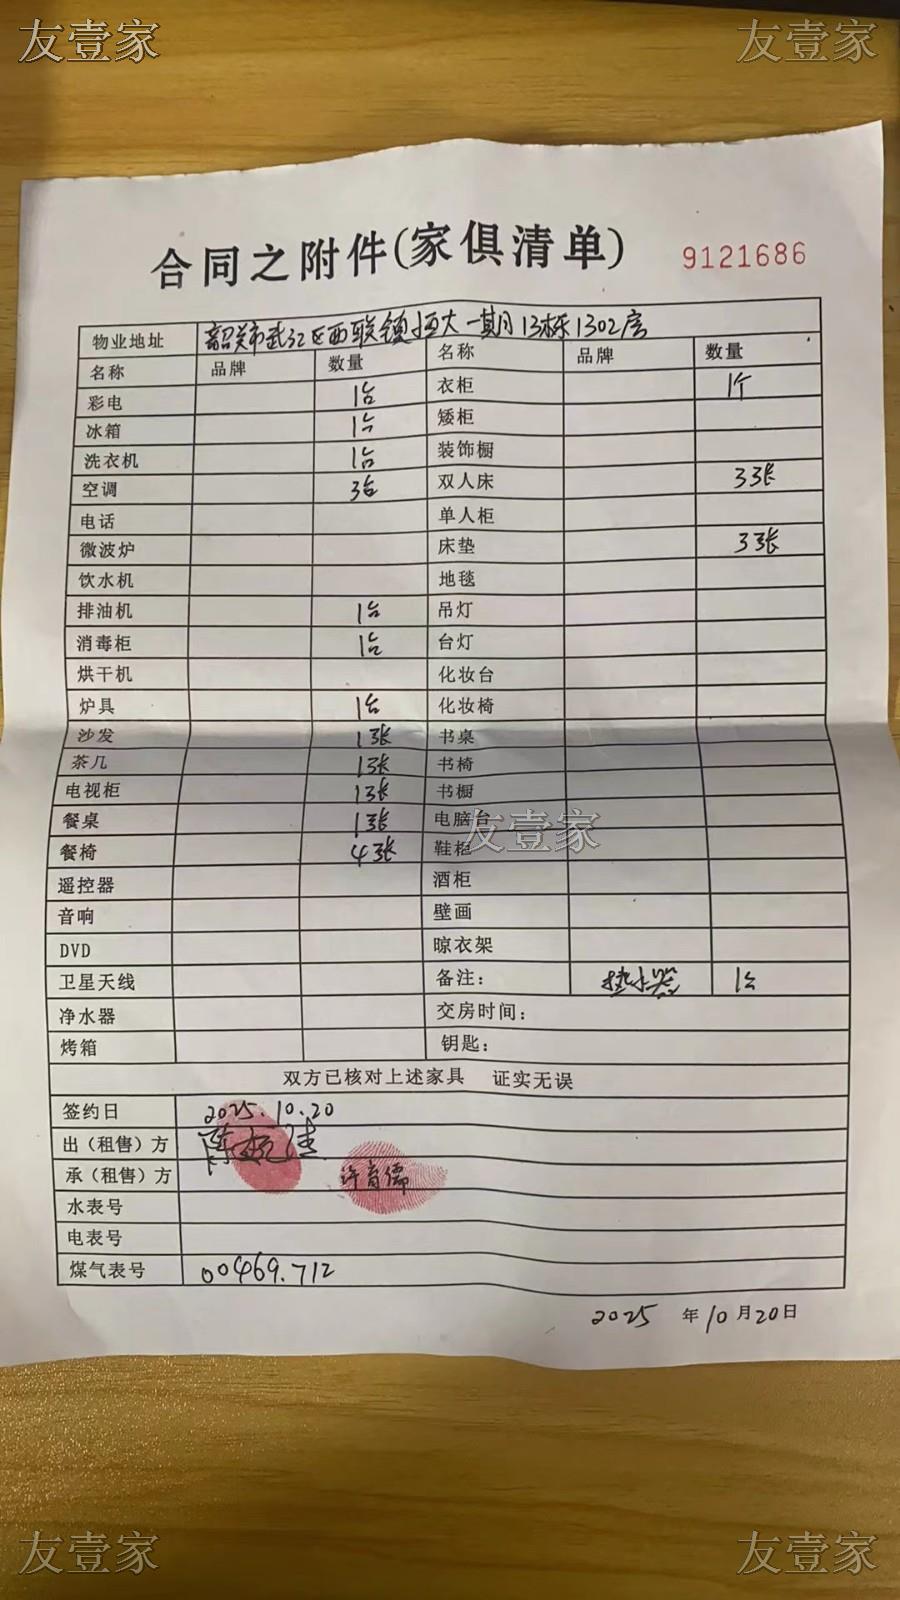 友壹家 友壹家
合同之附件(家俱清单) 9121686
物业地址 韶关市武江区西联镇恒大一期13栋1302房
名称 品牌 数量 名称 品牌 数量
彩电 1台 衣柜 1个
冰箱 1台 矮柜
洗衣机 1台 装饰橱
空调 3台 双人床 3张
电话 单人柜
微波炉 床垫 3张
饮水机 地毯
排油机 1台 吊灯
消毒柜 1台 台灯
烘干机 化妆台
炉具 1台 化妆椅
沙发 1张 书桌
茶几 1张 书椅
电视柜 1张 书橱
餐桌 1张 电脑台
友壹家
餐椅 4张 鞋柜
遥控器 酒柜
音响 壁画
DVD 晾衣架
卫星天线 备注: 热水器 1台
净水器 交房时间:
烤箱 钥匙:
双方已核对上述家具 证实无误
签约日 2025.10.20
出(租售)方
承(租售)方 许育儒
水表号
电表号
煤气表号 00469.712
2025 年10月20日
友壹家 友壹家